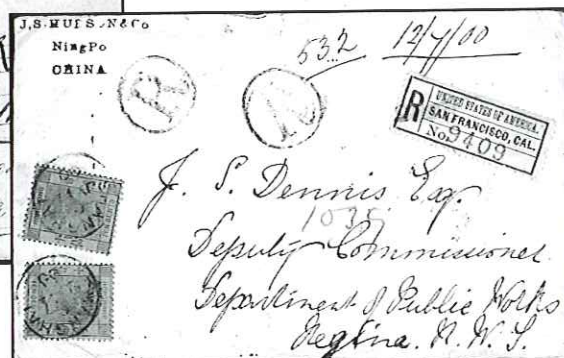 NingPo
CHINA
532
12/7/00
R
R
R
UNITED STATES OF AMERICA.
SAN FRANCISCO, CAL.
No. 9409
J. S. Dennis Esq.
1035
Deputy Commissioner
Department of Public Works
Regina. N. W. T.